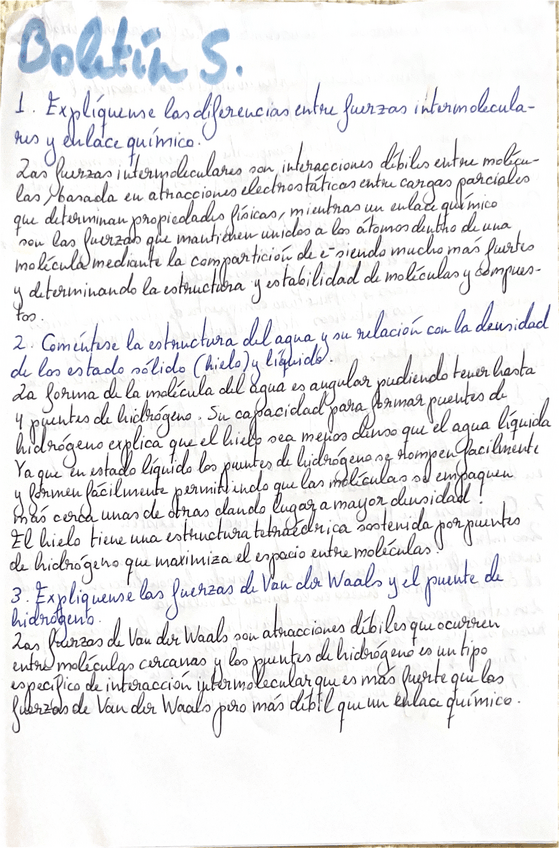 Boletín 5.
1. Explíquense las diferencias entre fuerzas intermolecula-
res y enlace químico.
Las fuerzas intermoleculares son interacciones débiles entre molécu-
las, basada en atracciones electrostáticas entre cargas parciales
que determinan propiedades físicas, mientras un enlace químico
son las fuerzas que mantienen unidos a los átomos dentro de una
molécula mediante la compartición de e- siendo mucho más fuertes
y determinando la estructura y estabilidad de moléculas y compues-
tos.
2. Coméntese la estructura del agua y su relación con la densidad
de los estado sólido (hielo) y líquido.
La forma de la molécula del agua es angular pudiendo tener hasta
4 puentes de hidrógeno. Su capacidad para formar puentes de
hidrógeno explica que el hielo sea menos denso que el agua líquida
Ya que en estado líquido los puentes de hidrógeno se rompen facilmente
y formen fácilmente permitiendo que las moléculas se empaquen
más cerca unas de otras dando lugar a mayor densidad!
El hielo tiene una estructura tetraédrica sostenida por puentes
de hidrógeno que maximiza el espacio entre moléculas.
3. Explíquense las fuerzas de Van der Waals y el puente de
hidrógeno.
Las fuerzas de Van der Waals son atracciones débiles que ocurren
entre moléculas cercanas y los puentes de hidrógeno es un tipo
específico de interacción intermolecular que es más fuerte que las
fuerzas de Van der Waals pero más débil que un enlace químico.